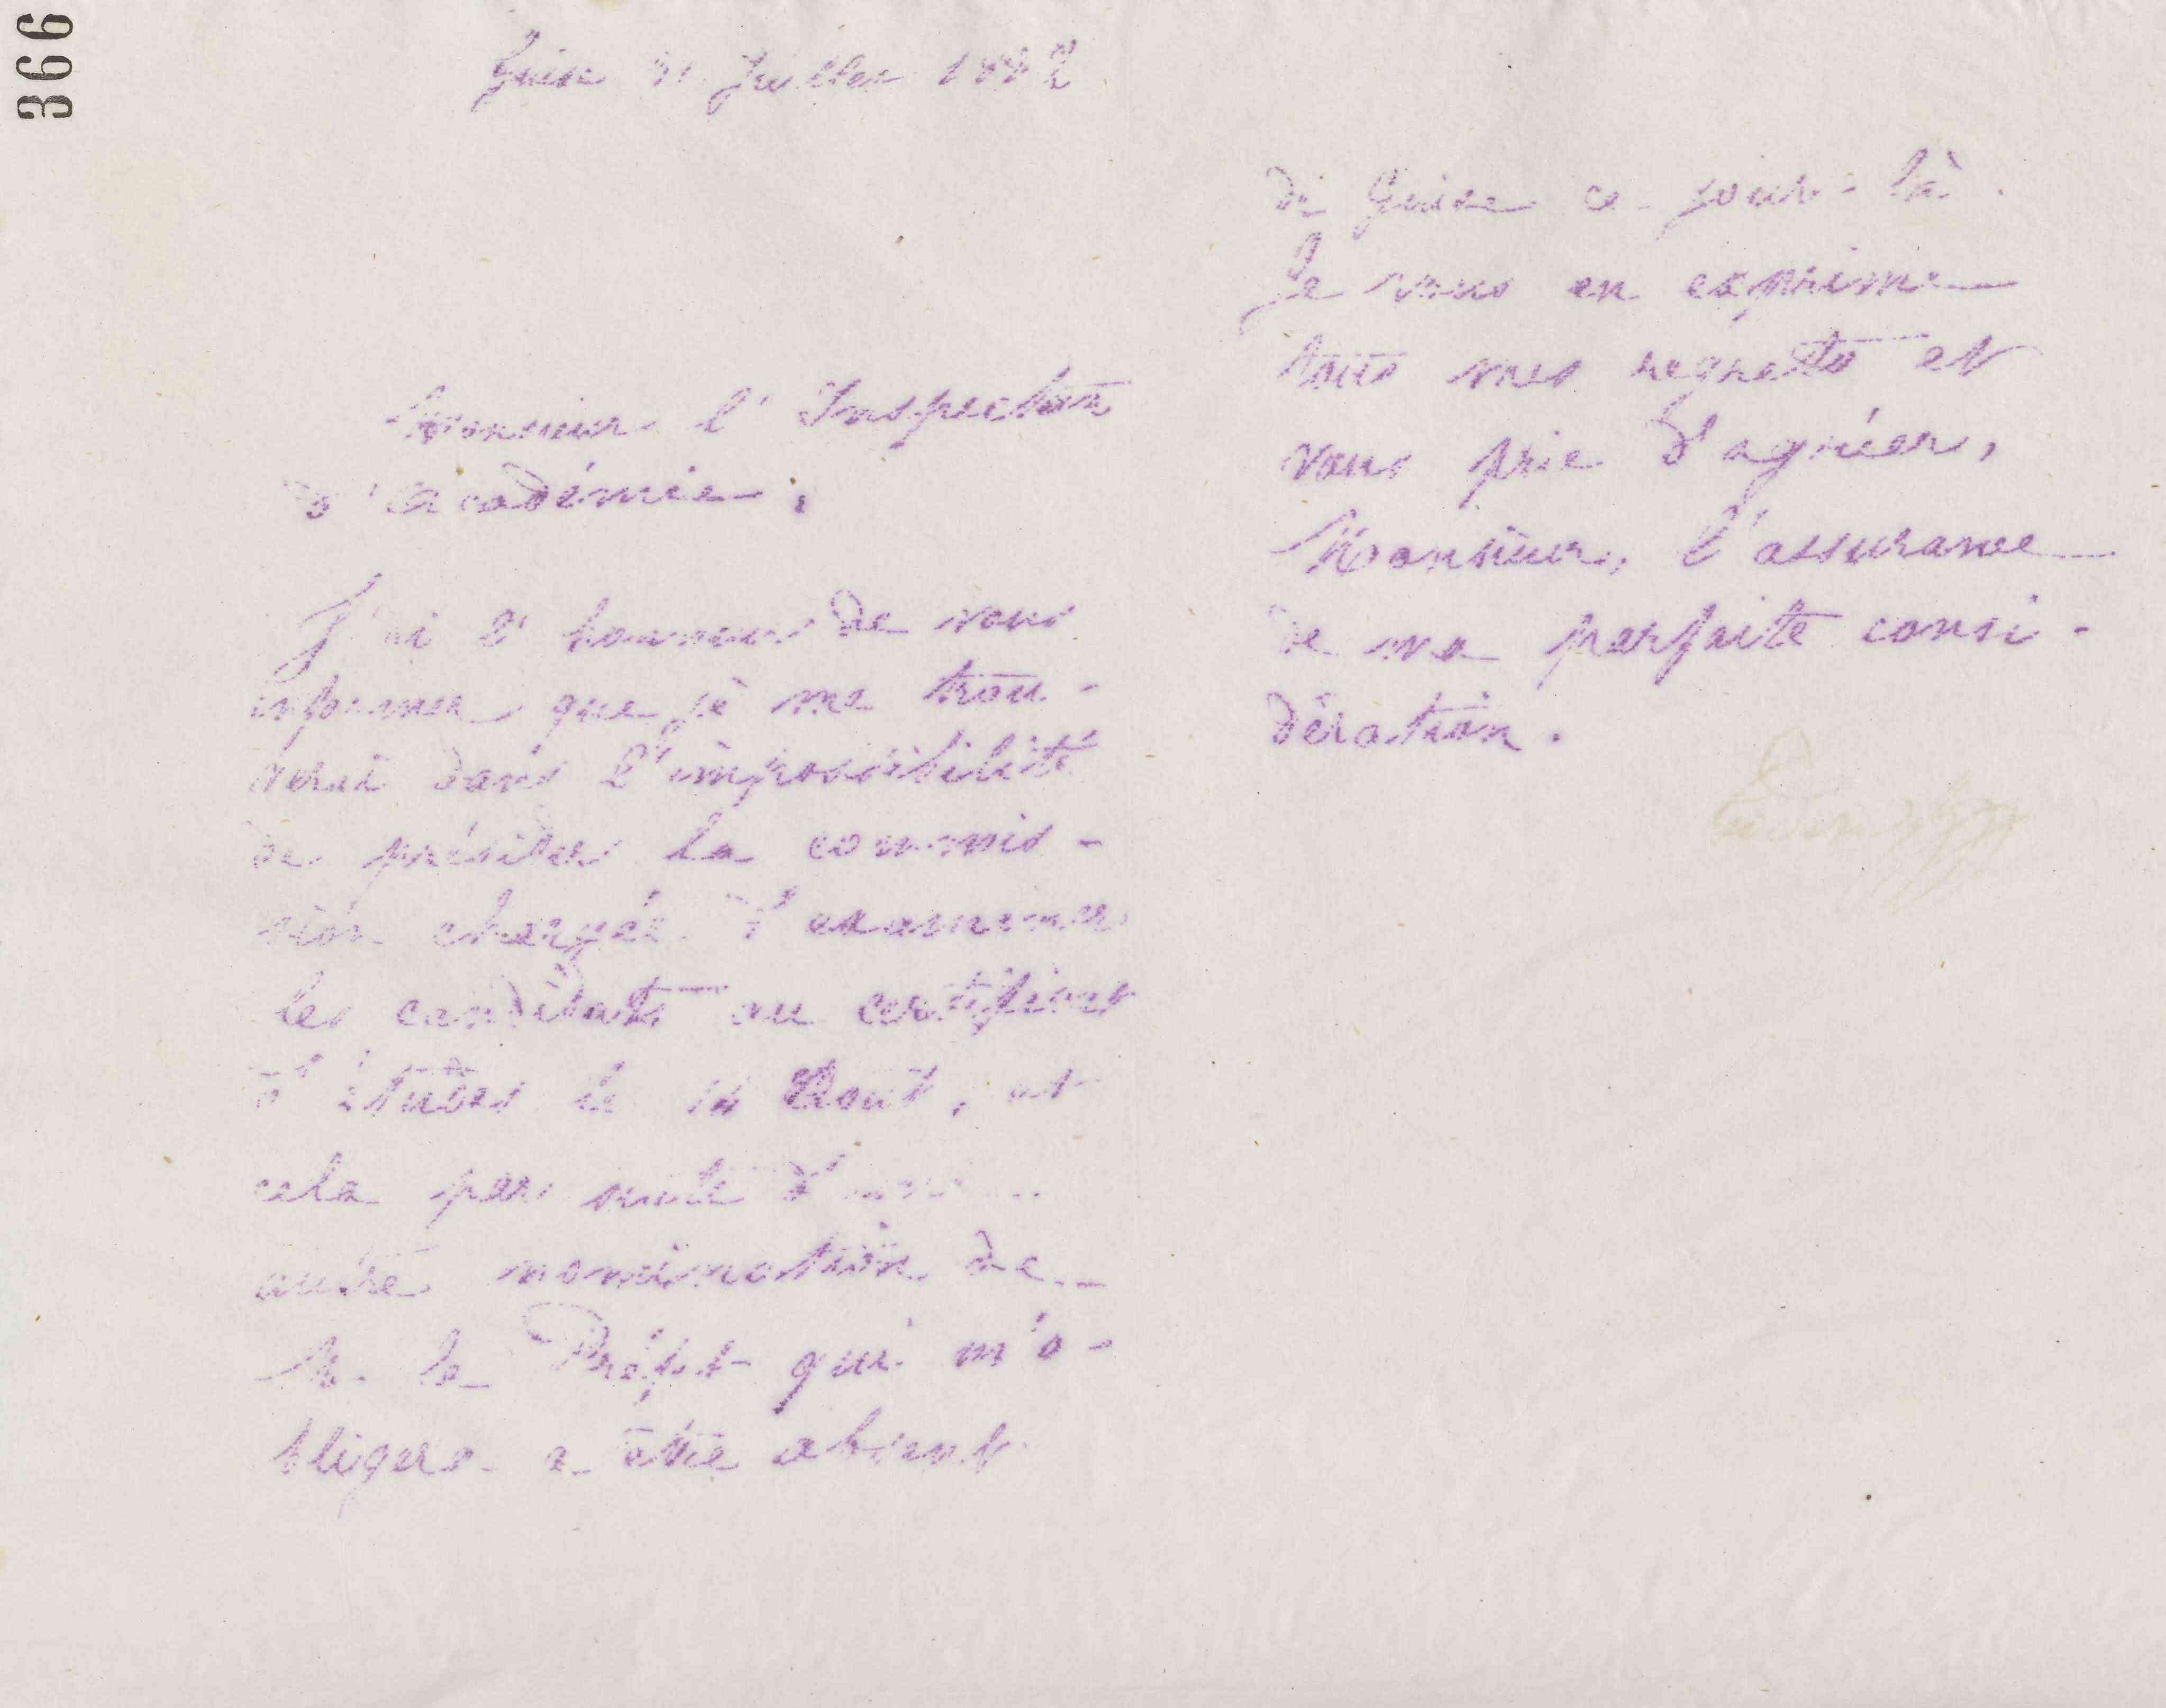 366
Guise 31 Juillet 1882
Monsieur l'Inspecteur
d'Académie,
J'ai l'honneur de vous
informer que je me trou-
verai dans l'impossibilité
de présider la commis-
sion chargée d'examiner
les candidats au certificat
d'études le 14 Aout, et
cela par suite d'une
autre nomination de
M. le Préfet qui m'o-
bligera a être absent
de Guise ce jour-là.
Je vous en exprime
tous mes regrets et
vous prie d'agréer,
Monsieur, l'assurance
de ma parfaite consi-
dération.